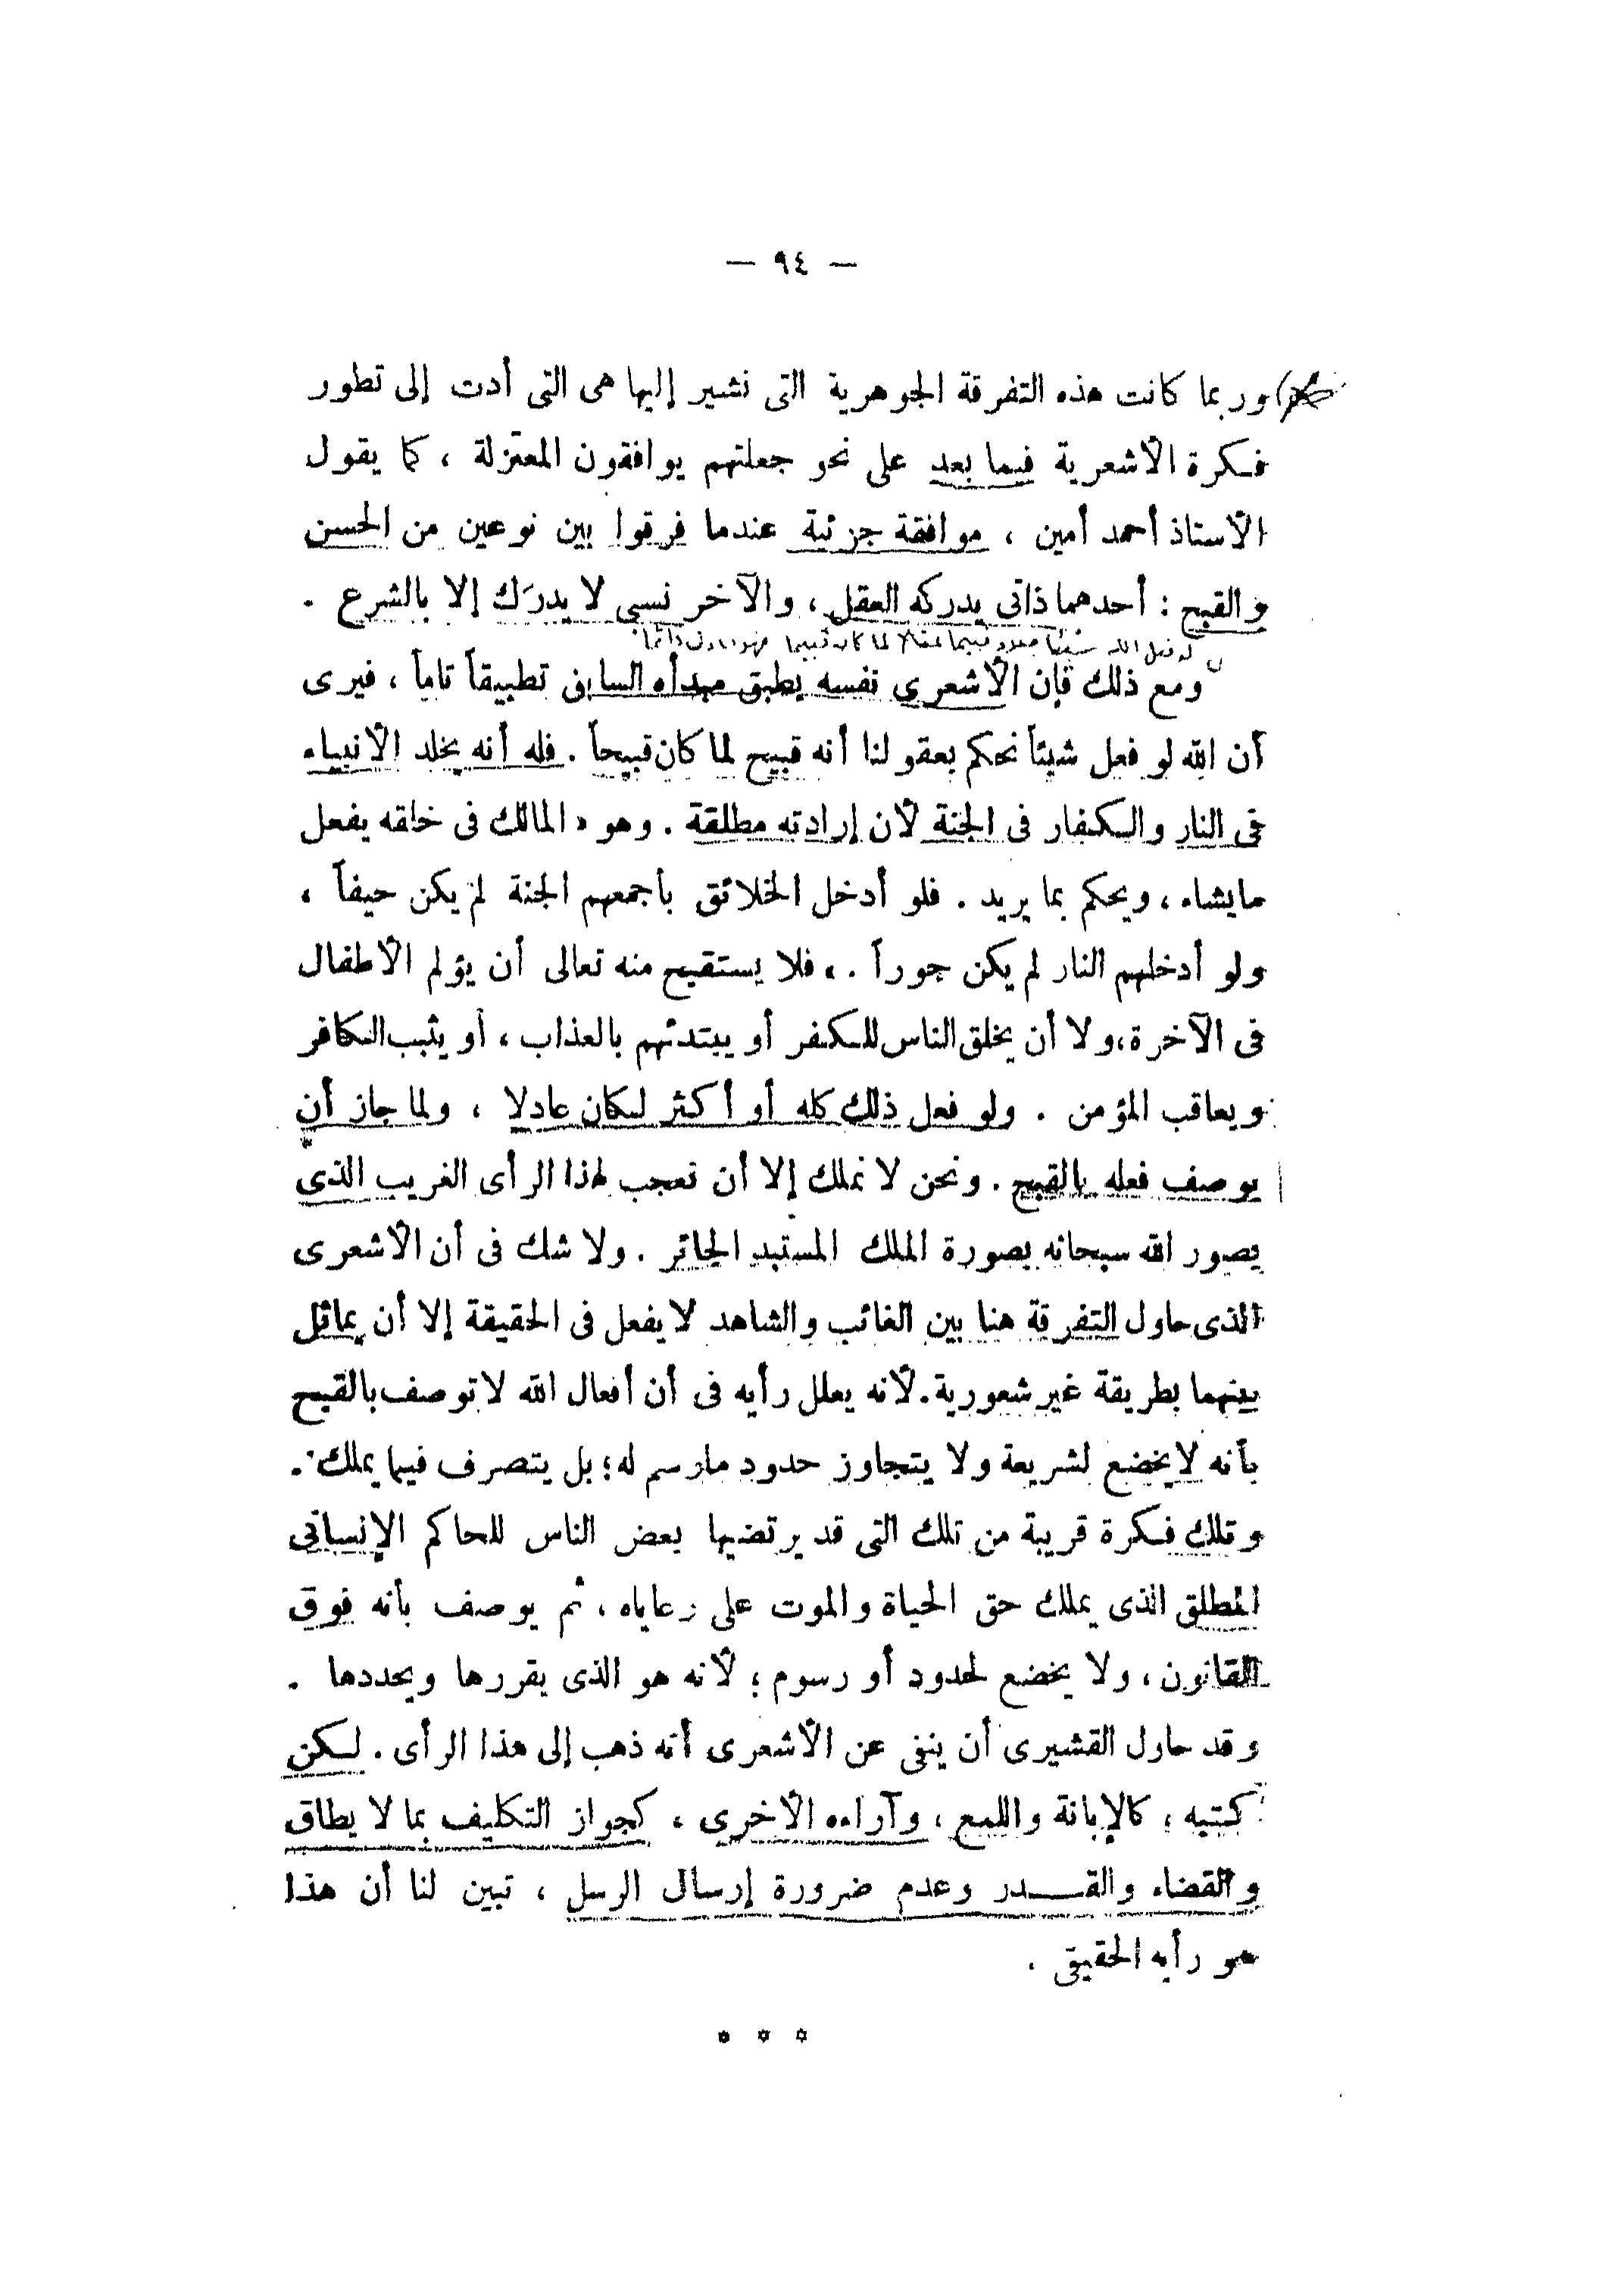 — ٩٤ —
وربما كانت هذه التفرقة الجوهرية التى نشير إليها هى التى أدت إلى تطور
فكرة الأشعرية فيما بعد على نحو جعلتهم يوافقون المعتزلة ، كما يقول
الأستاذ أحمد أمين ، موافقة جزئية عندما فرقوا بين نوعين من الحسن
والقبح : أحدهما ذاتى يدركه العقل ، والآخر نسبى لا يدرَك إلا بالشرع .
لو فعل الله شيئا قبيحا لما كان قبيحا
ومع ذلك فإن الأشعرى نفسه يطبق مبدأه السابق تطبيقاً تاماً ، فيرى
أن الله لو فعل شيئاً نحكم بعقولنا أنه قبيح لما كان قبيحاً . فله أنه يخلد الأنبياء
فى النار والكفار فى الجنة لأن إرادته مطلقة . وهو « المالك فى خلقه يفعل
ما يشاء ، ويحكم بما يريد . فلو أدخل الخلائق بأجمعهم الجنة لم يكن حيفاً ،
ولو أدخلهم النار لم يكن جوراً . » فلا يستقبح منه تعالى أن يؤلم الأطفال
فى الآخرة ، ولا أن يخلق الناس للكفر أو يبتدئهم بالعذاب ، أو يثيب الكافر
ويعاقب المؤمن . ولو فعل ذلك كله أو أكثر لكان عادلا ، ولما جاز أن
يوصف فعله بالقبح . ونحن لا نملك إلا أن نعجب لهذا الرأى الغريب الذى
يصور الله سبحانه بصورة الملك المستبد الجائر . ولا شك فى أن الأشعرى
الذى حاول التفرقة هنا بين الغائب والشاهد لا يفعل فى الحقيقة إلا أن يماثل
بينهما بطريقة غير شعورية . لأنه يعلل رأيه فى أن أفعال الله لا توصف بالقبح
بأنه لا يخضع لشريعة ولا يتجاوز حدود ما رسم له ؛ بل يتصرف فيما يملك .
وتلك فكرة قريبة من تلك التى قد يرتضيها بعض الناس للحاكم الإنسانى
المطلق الذى يملك حق الحياة والموت على رعاياه ، ثم يوصف بأنه فوق
القانون ، ولا يخضع لحدود أو رسوم ؛ لأنه هو الذى يقررها ويحددها .
وقد حاول القشيرى أن ينفى عن الأشعرى أنه ذهب إلى هذا الرأى . لكن
كتبه ، كالإبانة واللمع ، وآراءه الأخرى ، كجواز التكليف بما لا يطاق
والقضاء والقدر وعدم ضرورة إرسال الرسل ، تبين لنا أن هذا
هو رأيه الحقيقى .
* * *